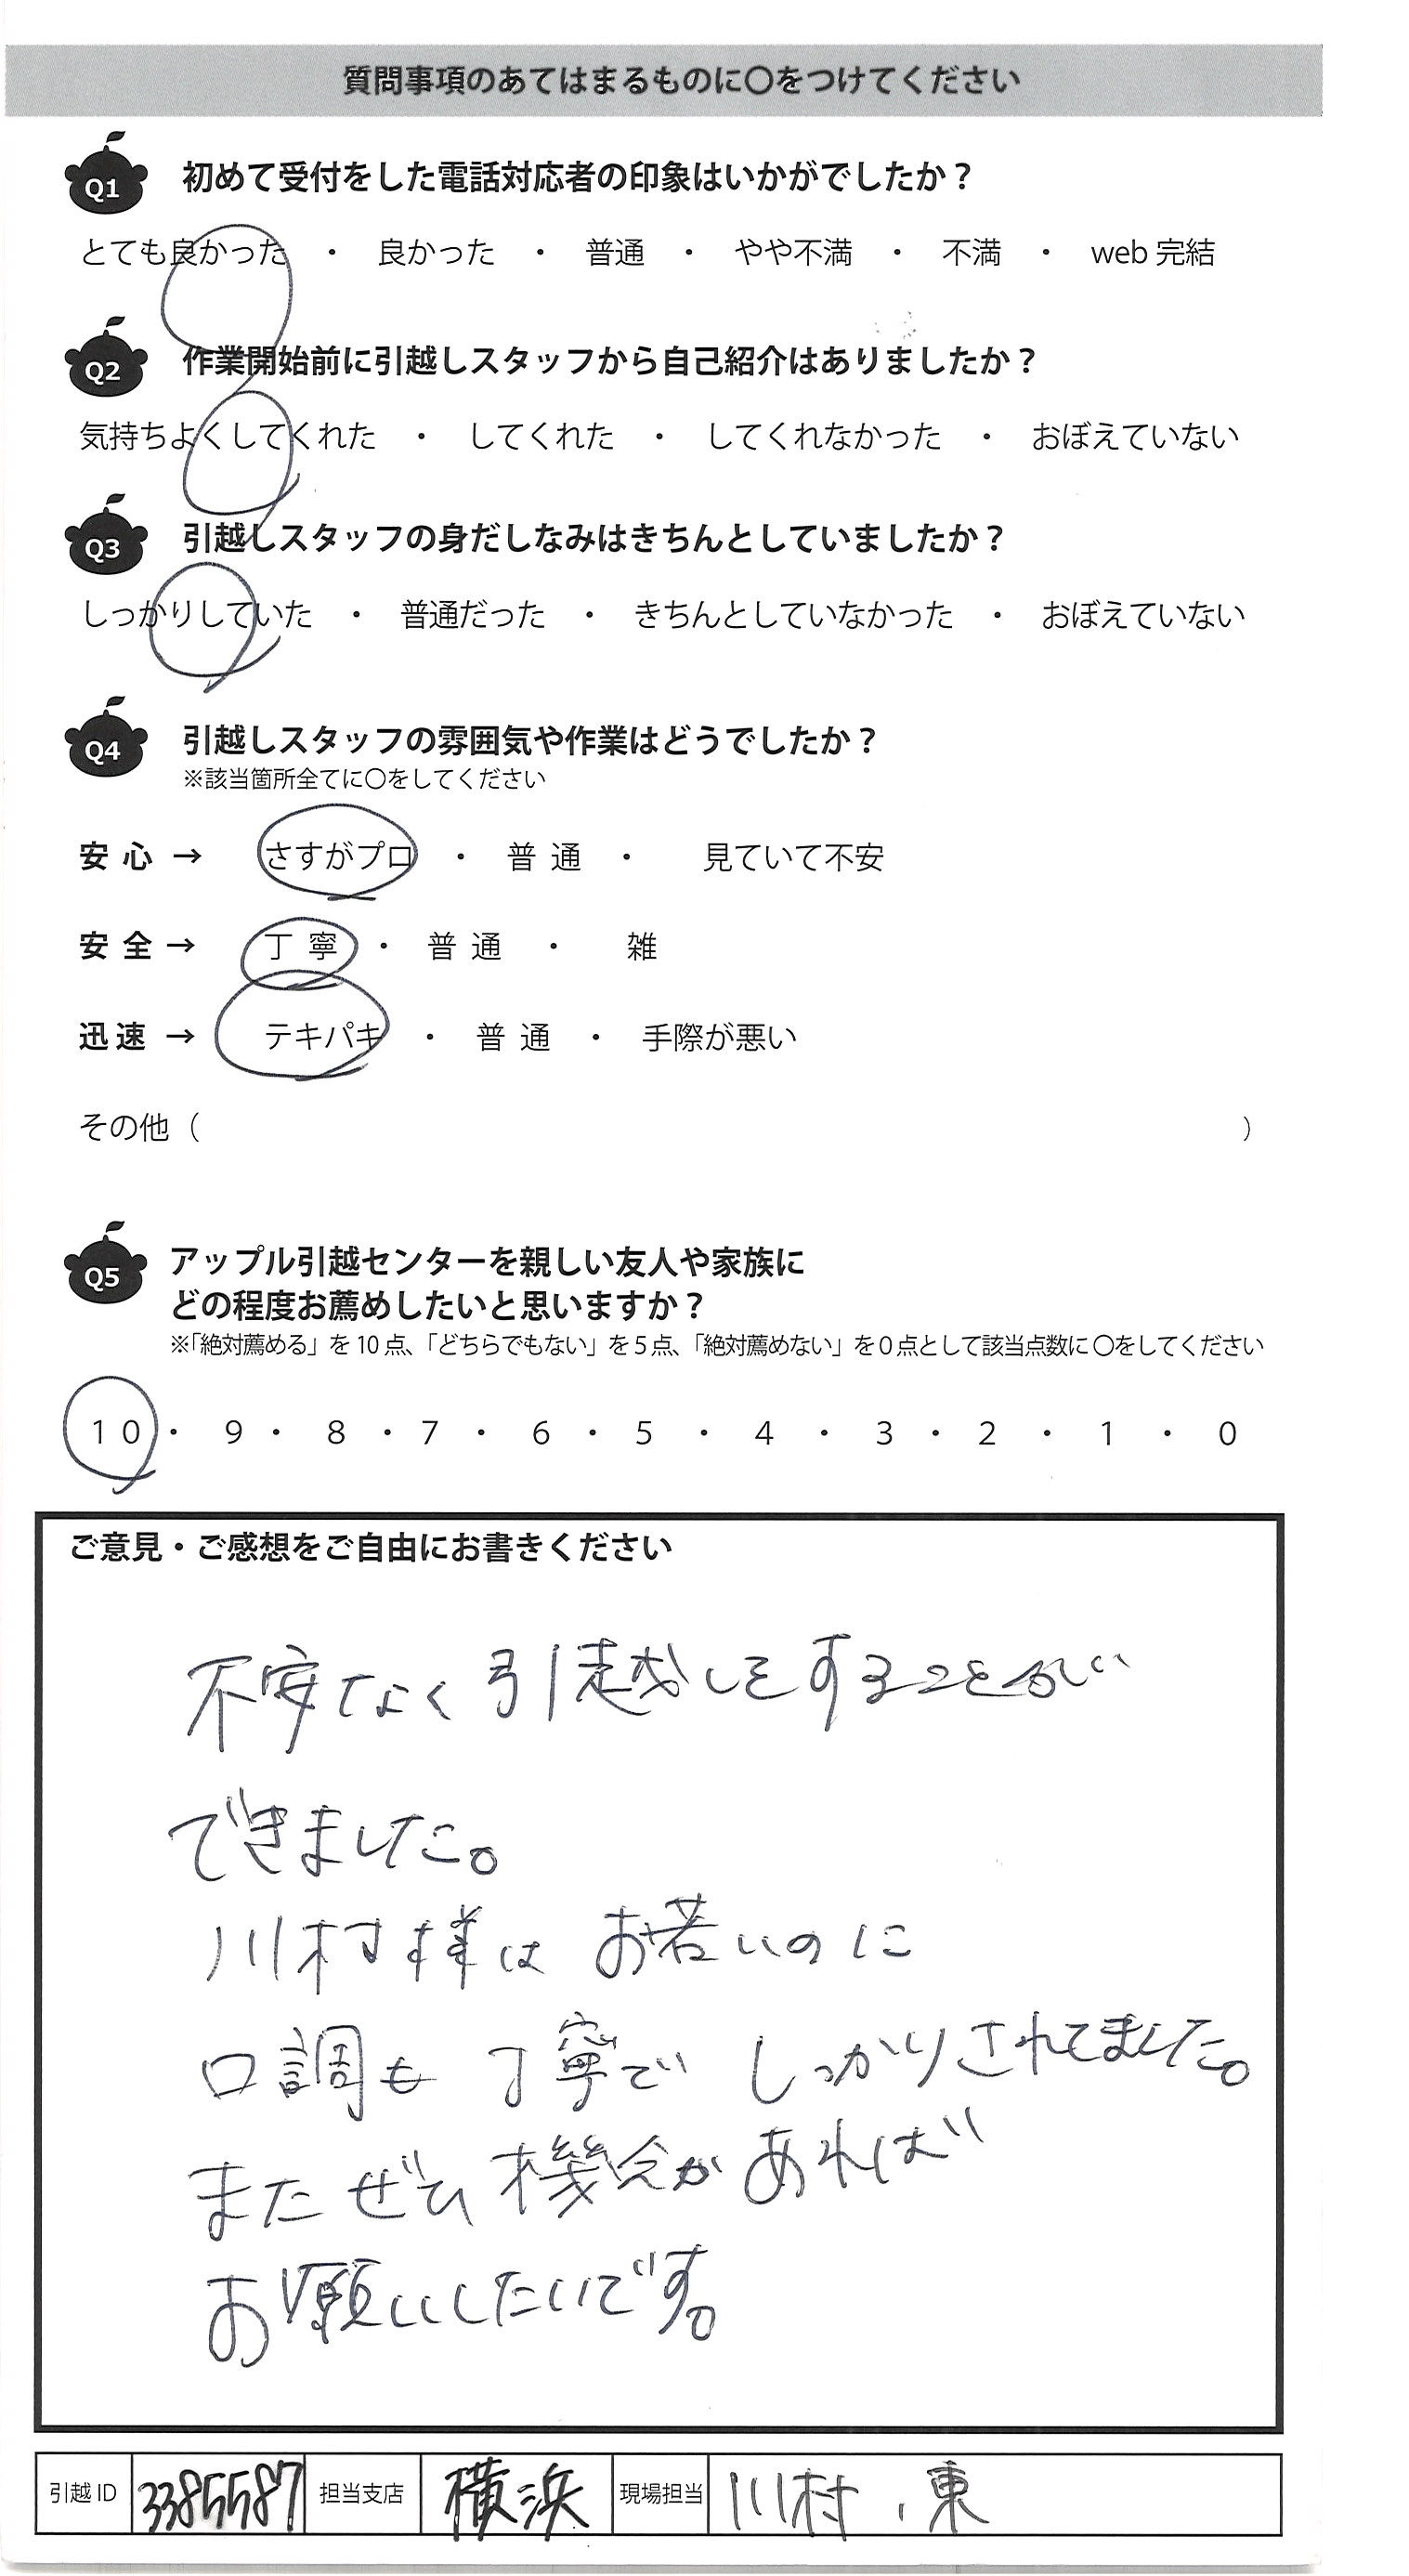 質問事項のあてはまるものに〇をつけてください
Q1 初めて受付をした電話対応者の印象はいかがでしたか？
とても良かった ・ 良かった ・ 普通 ・ やや不満 ・ 不満 ・ web 完結
Q2 作業開始前に引越しスタッフから自己紹介はありましたか？
気持ちよくしてくれた ・ してくれた ・ してくれなかった ・ おぼえていない
Q3 引越しスタッフの身だしなみはきちんとしていましたか？
しっかりしていた ・ 普通だった ・ きちんとしていなかった ・ おぼえていない
Q4 引越しスタッフの雰囲気や作業はどうでしたか？
※該当箇所全てに〇をしてください
安心 → さすがプロ ・ 普通 ・ 見ていて不安
安全 → 丁寧 ・ 普通 ・ 雑
迅速 → テキパキ ・ 普通 ・ 手際が悪い
その他（ ）
Q5 アップル引越センターを親しい友人や家族に
どの程度お薦めしたいと思いますか？
※「絶対薦める」を 10 点、「どちらでもない」を 5 点、「絶対薦めない」を 0 点として該当点数に 〇をしてください
10 ・ 9 ・ 8 ・ 7 ・ 6 ・ 5 ・ 4 ・ 3 ・ 2 ・ 1 ・ 0
ご意見・ご感想をご自由にお書きください
不安なく引越しをすることが
できました。
川村様はお若いのに
口調も丁寧でしっかりされてました。
またぜひ機会があれば
お願いしたいです。
引越 ID 3385587 担当支店 横浜 現場担当 川村、東